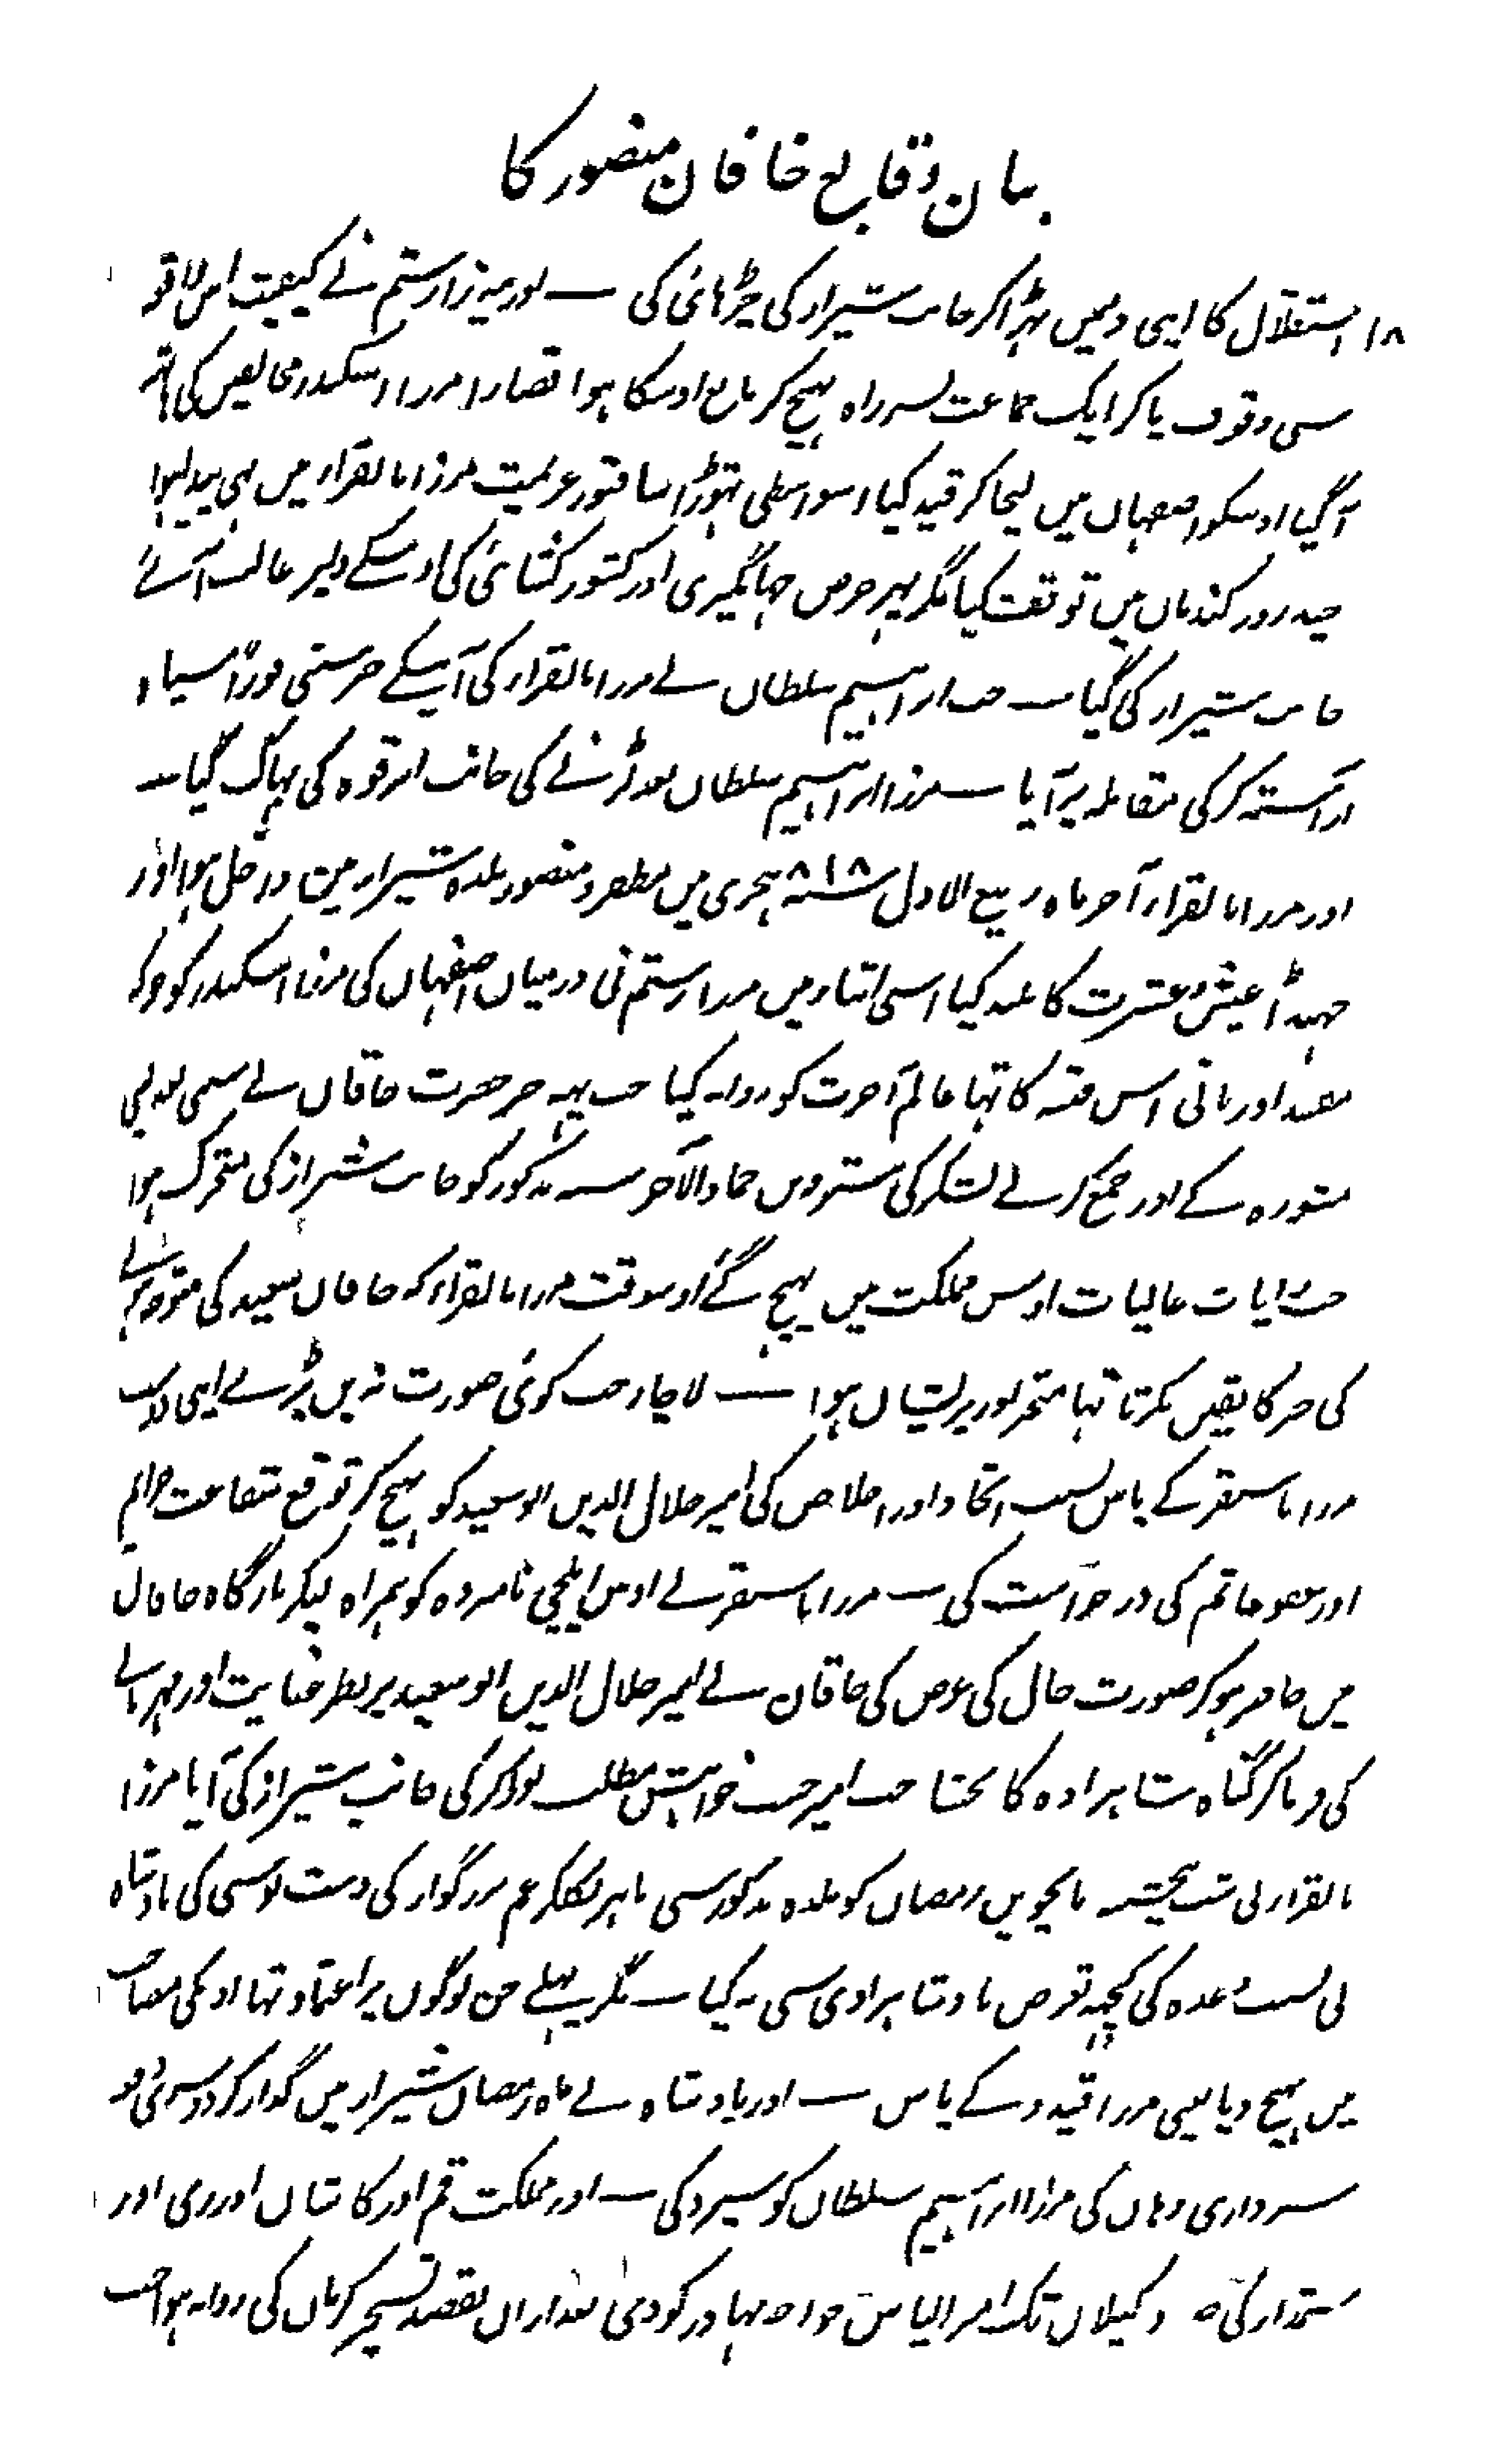 بیان وقایع خاقان منصور کا
۱۸ استقلال کا اپنی دلمیں ٹہرا کر جانب شیراز کی چڑھائی کی — اور میرزا رستم نے کیفیت اس
سی وقوف پاکر ایک جماعت بسرراہ بھیج کر مانع اوسکا ہوا قضارا مرزا اسکندر مخالفین کی
آگیا اوسکو اصفہان میں لیجا کر قید کیا اسواسطی تہوڑا سا فتور عزیمت مرزا بایقرا میں بہی پیدا ہوا
چند روز کندمان میں توقف کیا مگر پہر حرص جہانگیری اور کشور کشائی کی اوسکے دلپر غالب آئے
جانب شیراز کی گیا — جب ابراہیم سلطان نے مرزا بایقرا کی آنیکے خبر سنی فوراً سپاہ
آراستہ کر کی مقابلہ پر آیا — مرزا ابراہیم سلطان بعد لڑنے کی جانب ابرقوہ کی بہاگ گیا —
اور مرزا بایقرا آخر ماہ ربیع الاول ۸۱۸ ہجری میں مظفر و منصور بلدہ شیراز مین داخل ہوا اور
جہنڈا عیش و عشرت کا بلند کیا اسی اثناء میں مرزا رستم نی درمیان اصفہان کی مرزا اسکندر کو جو کہ
مفسد اور بانی اس فتنہ کا تہا عالم آخرت کو روانہ کیا جب یہہ خبر حضرت خاقان نے سنی بعد لینی
مشورہ کے اور جمع کرنے لشکر کی سترویں جمادالآخر سنہ مذکور کو جانب شیراز کی متحرک ہوا
جب رایات عالیات اوس مملکت میں پہنچ گئے اوسوقت مرزا بایقرا کہ خاقان سعید کی متوجہ ہونے
کی خبر کا یقین نکرتا تہا متحیر اور پریشان ہوا — لاچار جب کوئی صورت نہ بن پڑے اپنی
مرزا بایسنقر کے پاس بسبب اتحاد اور اخلاص کی امیر جلال الدین ابوسعید کو بھیج کر توقع شفاعت جرایم
اور عفو خاتم کی درخواست کی — مرزا بایسنقر نے اوس ایلچی نامبردہ کو ہمراہ لیکر بارگاہ خاقان
میں حاضر ہو کر صورت حال کی عرض کی خاقان نے امیر جلال الدین ابوسعید پر نظر عنایت اور مہربانے
کی فرما کر گناہ شاہزادہ کا بخشا جب امیر حسب خواہش مطلب پورا کر کی جانب شیراز کی آیا مرزا
بایقرا نی شب پنجشنبہ پانچویں رمضان کو بلدہ مذکور سی باہر نکلکر عم بزرگوار کی دست بوسی کی بادشاہ
نی بسبب وعدہ کی کچہہ تعرض بادشاہزادی سی نہ کیا — مگر پہلے جن لوگوں پر اعتماد تہا اونکی مصاحبت
میں بھیج دیا یعنی مرزا قیدو کے پاس — اور بادشاہ نے ماہ رمضان شیراز میں گذار کر
سرداری وہاں کی مرزا ابراہیم سلطان کو سپرد کی — اور مملکت قم اور کاشان اور ری اور
رستمدار کی وگیلان تک امیر الیاس خواجہ بہادر کو دی بعد ازاں بقصد تسخیر کرمان کی روانہ ہوا جب